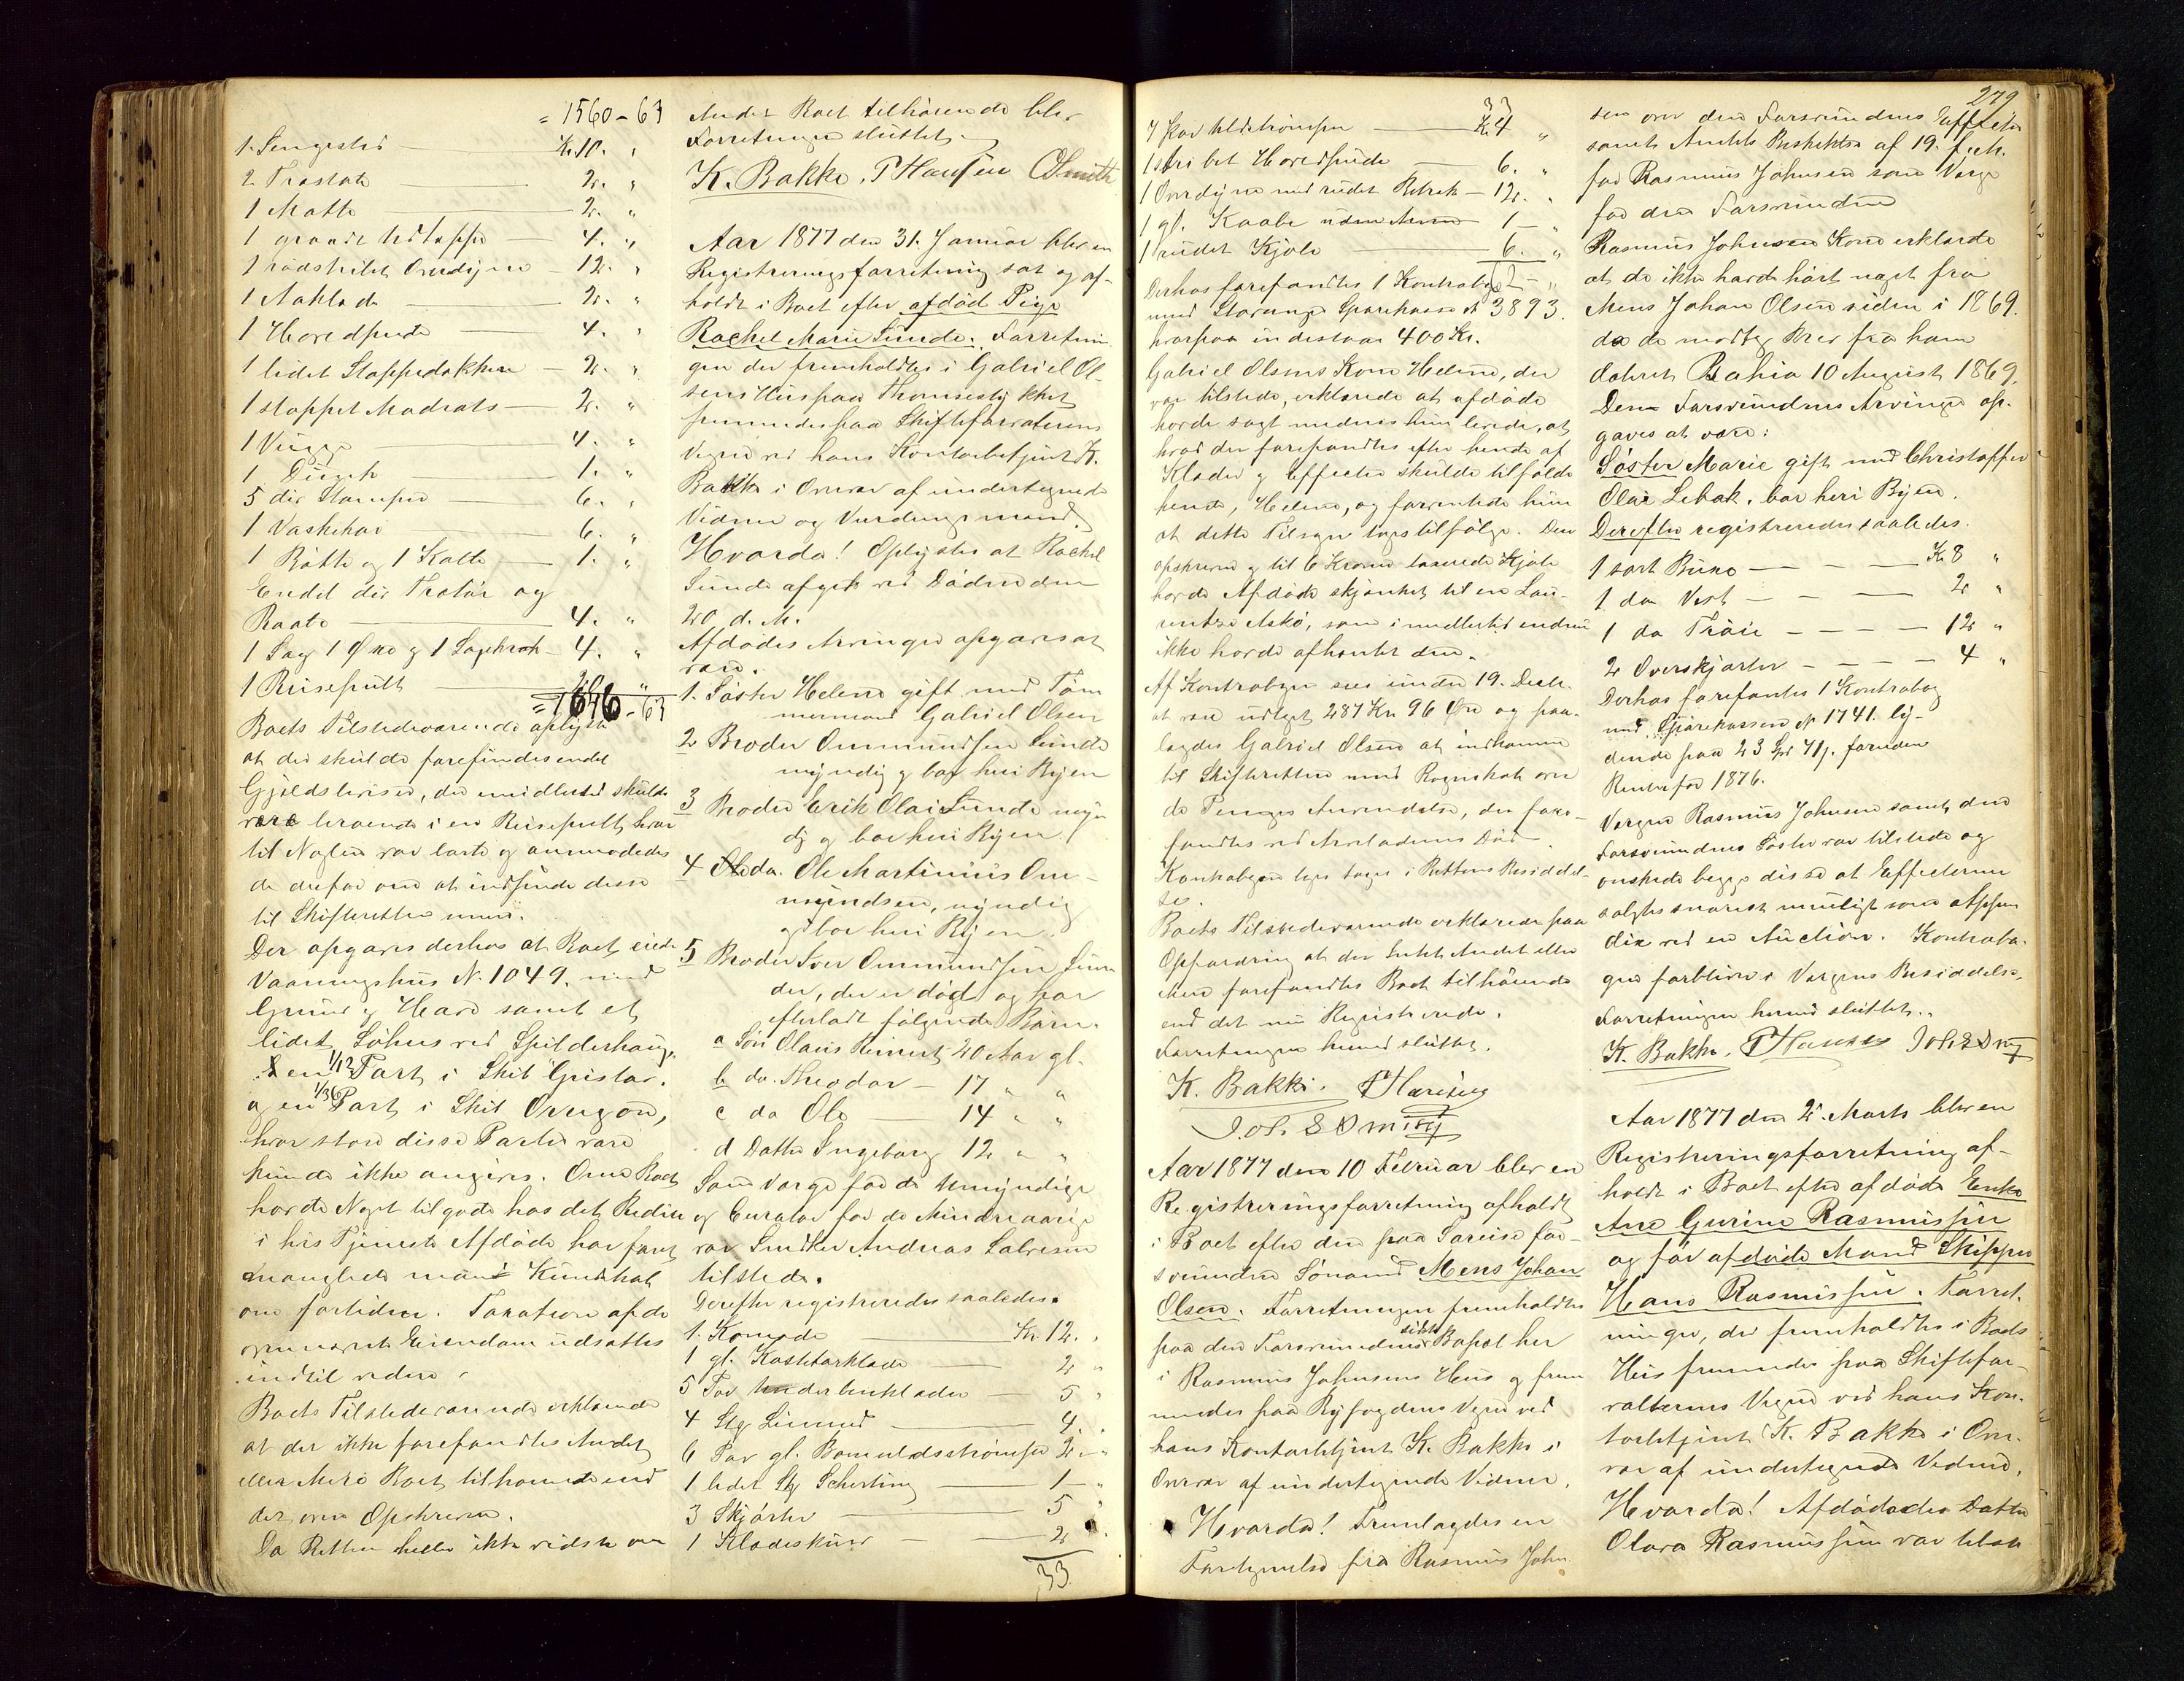 = 1560 - 63
1 Sengested Kr 10. "
2 Træstole 2. "
1 Matte 2. "
1 4. "
1 rødstribet Overdyne 12. "
1 Aaklæde 2. "
1 Hovedpude 4. "
1 lidet Stoppedækken 2. "
1 stoppet Madrats 2. "
1 Vugge 4. "
1 1. "
5 div Stamper 6. "
1 Vaskekar 6. "
1 Bøtte og 1 Kolle 1. "
Endel div Træløs og
4. "
1 Sag 1 Øxe og 1 4. "
1 Reisepult
= 1646 - 63
Boets Tilstedeværende oplyste
at der skulde forefindes endel
Gjældsbeviser, der imidlertid skulde
være beroende i en Reisepult, hvor
til Nøglen var borte og anmodedes
de derfor om at indsende disse
til Skifteretten
Der opgaves derhos at Boet eiede
Vaaningshus N. 1049. med
Grund og Have samt et
lidet Søhus ved Spilderhaug,
en 1/12 Part i Skib
og en 1/36 Part i Skib Oregon,
hvor store disse Parter vare
kunde ikke angives. Om Boet
havde Noget tilgode hos det Rederi
i hvis Tjeneste Afdøde har faret
manglede man Kundskab
om fortiden. Taxation af de
ommeldte Eiendom udsattes
indtil videre.
Boets Tilstedeværende erklærede
at der ikke forefandtes Andet
eller Mere Boet tilhørende end
det, ovn Opskrevne.
Da Retten heller ikke vidste om
Andet Boet tilhørende blev
Forretningen sluttet.
K. Bakke. P Hansen OSmith
Aar 1877 den 31. Januar blev en
Registreringsforretning sat og af-
holdt i Boet efter afdød Pige
Rachel Marie Sunde. Forretnin
gen der fremholdtes i Gabriel Ol-
sens Hus paa
fremmedes paa Skifteforvalterens
Vegne ved hans Kontorbetjent K.
Bakke i Overvær af undertegnede
Vidner og Vurderingsmænd.
Hvorda! Oplystes at Rachel
Sunde afgik ved Døden den
20 d. M.
Afdødes Arvinger opgaves at
være.
1. Søster Helene gift med Tøm
mermand Gabriel Olsen
2 Broder Ommundsen Sunde
myndig og bor her i Byen
3 Broder Erik Olai Sunde myn
dig og bor her i Byen
4 do. Ole Martinius Om-
mundsen, myndig
og bor her i Byen.
5 Broder Iver Ommundsen Sun
der, der er død og har
efterladt følgende Børn.
a Søn Olaus Reinert 20 Aar gl.
b do. Theodor - 17 " "
c do Ole 14 " "
d Datter Ingeborg 12 " "
Som Værge for de Umyndige
og Curator for de Mindreaarige
var Snedker Andreas Salvesen
tilstede.
Derefter registreredes saaledes.
1. Komode Kr. 12. "
1 gl. Kasteforklæde 2 "
5 Par Underbenklæder 5 "
4 Stg Linned 4. "
6 Par gl. Bomuldsstrømper 2 - "
1 lidet Stg Schirting 1 - "
3 Skjørter 5 "
1 Klædeskurv 2 "
33
279
33
7 Par Uldstrømper Kr 4 "
1 stribet Hovedpude 6. "
1 Overdyne med rudet Betræk - 12. "
1 gl. Kaabe uden 1 - "
1 rudet Kjole 6. "
Derhos forefandtes 1 Kontrabog
med Stavanger Sparekasse N 3893.
hvorpaa indestaar 400 Kr.
Gabriel Olsens Kone Helene, der
var tilstede, erklærede at afdøde
havde sagt medens hun levede, at
hvad der forefandtes efter hende af
Klæder og Effecter skulde tilfalde
hende, Helene, og formente hun
at dette Tilsagn toges tilfølge. Den
opskrevne og til 6 Kroner taxerede Kjole
havde Afdøde skjænket til en Lau-
rentze Askø, som imidlertid endnu
ikke havde afhentet den.
Af Kontrabogen sees under 19. Decbr.
at være udtaget 287 Kr. 96 Øre og paa-
lagdes Gabriel Olsen at indkomme
til Skifteretten med Regnskab over
de Penges Anvendelse, der fore-
fandtes ved Arveladerens Død.
Kontrabogen toges i Rettens Besiddel-
se.
Boets Tilstedeværende erklærede paa
Opfordring at der Intet Andet eller
Mere forefandtes Boet tilhørende
end det nu Registrerede.
Forretningen hermed sluttet.
K. Bakke. P Hansen
Joh. S Smith
Aar 1877 den 10 Februar blev en
Registreringsforretning afholdt
i Boet efter den paa Søreise for-
svundne Sømand Mens Johan
Olsen. Forretningen fremholdtes
paa den Forsvundnes sidste Bopæl her
i Rasmus Johnsens Hus og frem
medes paa Byfogdens Vegne ved
hans Kontorbetjent K. Bakke i
Overvær af undertegnede Vidner.
Hvorda! Fremlagdes en
Fortegnelse fra Rasmus John
sen over den Forsvundnes Effecter
samt Amtets Beskikkelse af 19. f. M.
for Rasmus Johnsen som Værge
for den Forsvundne
Rasmus Johnsens Kone erklærede
at de ikke havde hørt noget fra
Mens Johan Olsen siden i 1869.
da de modtog Brev fra ham
dateret Bahia 10 August 1869.
Den Forsvundnes Arvinger op-
gaves at være:
Søster Marie gift med Christoffer
Olai bor heri Byen.
Derefter registreredes saaledes.
1 sort Buxe Kr 8 "
1 do Vest 2 "
1 do Trøie 12 "
2 Overskjorter 4 "
Derhos forefantes 1 Kontrabog
med Sparekassen N 1741. ly-
dende paa 23 Spd 41 foruden
Renter for 1876.
Værgen Rasmus Johnsen samt den
Forsvundnes Søster var tilstede og
ønskede begge disse at Effecterne
solgtes snarest muligt som Appen
dix ved en Auction. Kontrabo-
gen forbliver i Værgens Besiddelse.
Forretningen hermed sluttet..
K. Bakke. P Hansen Joh. S Smith
Aar 1877 den 2. Marts blev en
Registreringsforretning af-
holdt i Boet efter afdøde Enke
Ane Gurine Rasmussen
og før afdøde Mand Skipper
Hans Rasmussen. Forret-
ningen, der fremholdtes i Boets
Hus fremmedes paa Skiftefor-
valterens Vegne ved hans Kon-
torbetjent K. Bakke i Over-
vær af undertegnede Vidner.
Hvorda! Afdødedes Datter
Olava Rasmussen var tilste